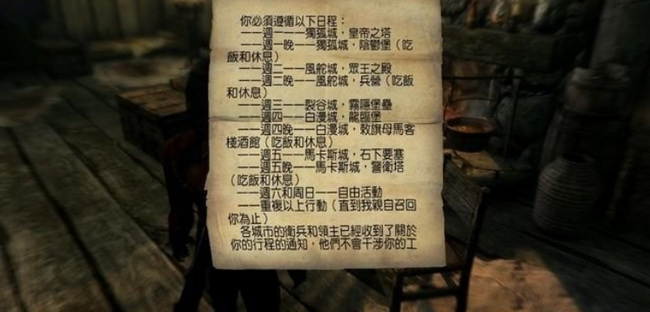 你必須遵循以下日程：
——週一——獨孤城，皇帝之塔
——週一晚——獨孤城，陰鬱堡（吃
飯和休息）
——週二——風舵城，眾王之殿
——週二晚——風舵城，兵營（吃飯
和休息）
——週三——裂谷城，霧隱堡壘
——週四——白漫城，龍臨堡
——週四晚——白漫城，救旗母馬客
棧酒館（吃飯和休息）
——週五——馬卡斯城，石下要塞
——週五晚——馬卡斯城，警衛塔
（吃飯和休息）
——週六和周日——自由活動
——重複以上行動（直到我親自召回
你為止）
各城市的衛兵和領主已經收到了關於
你的行程的通知，他們不會干涉你的工